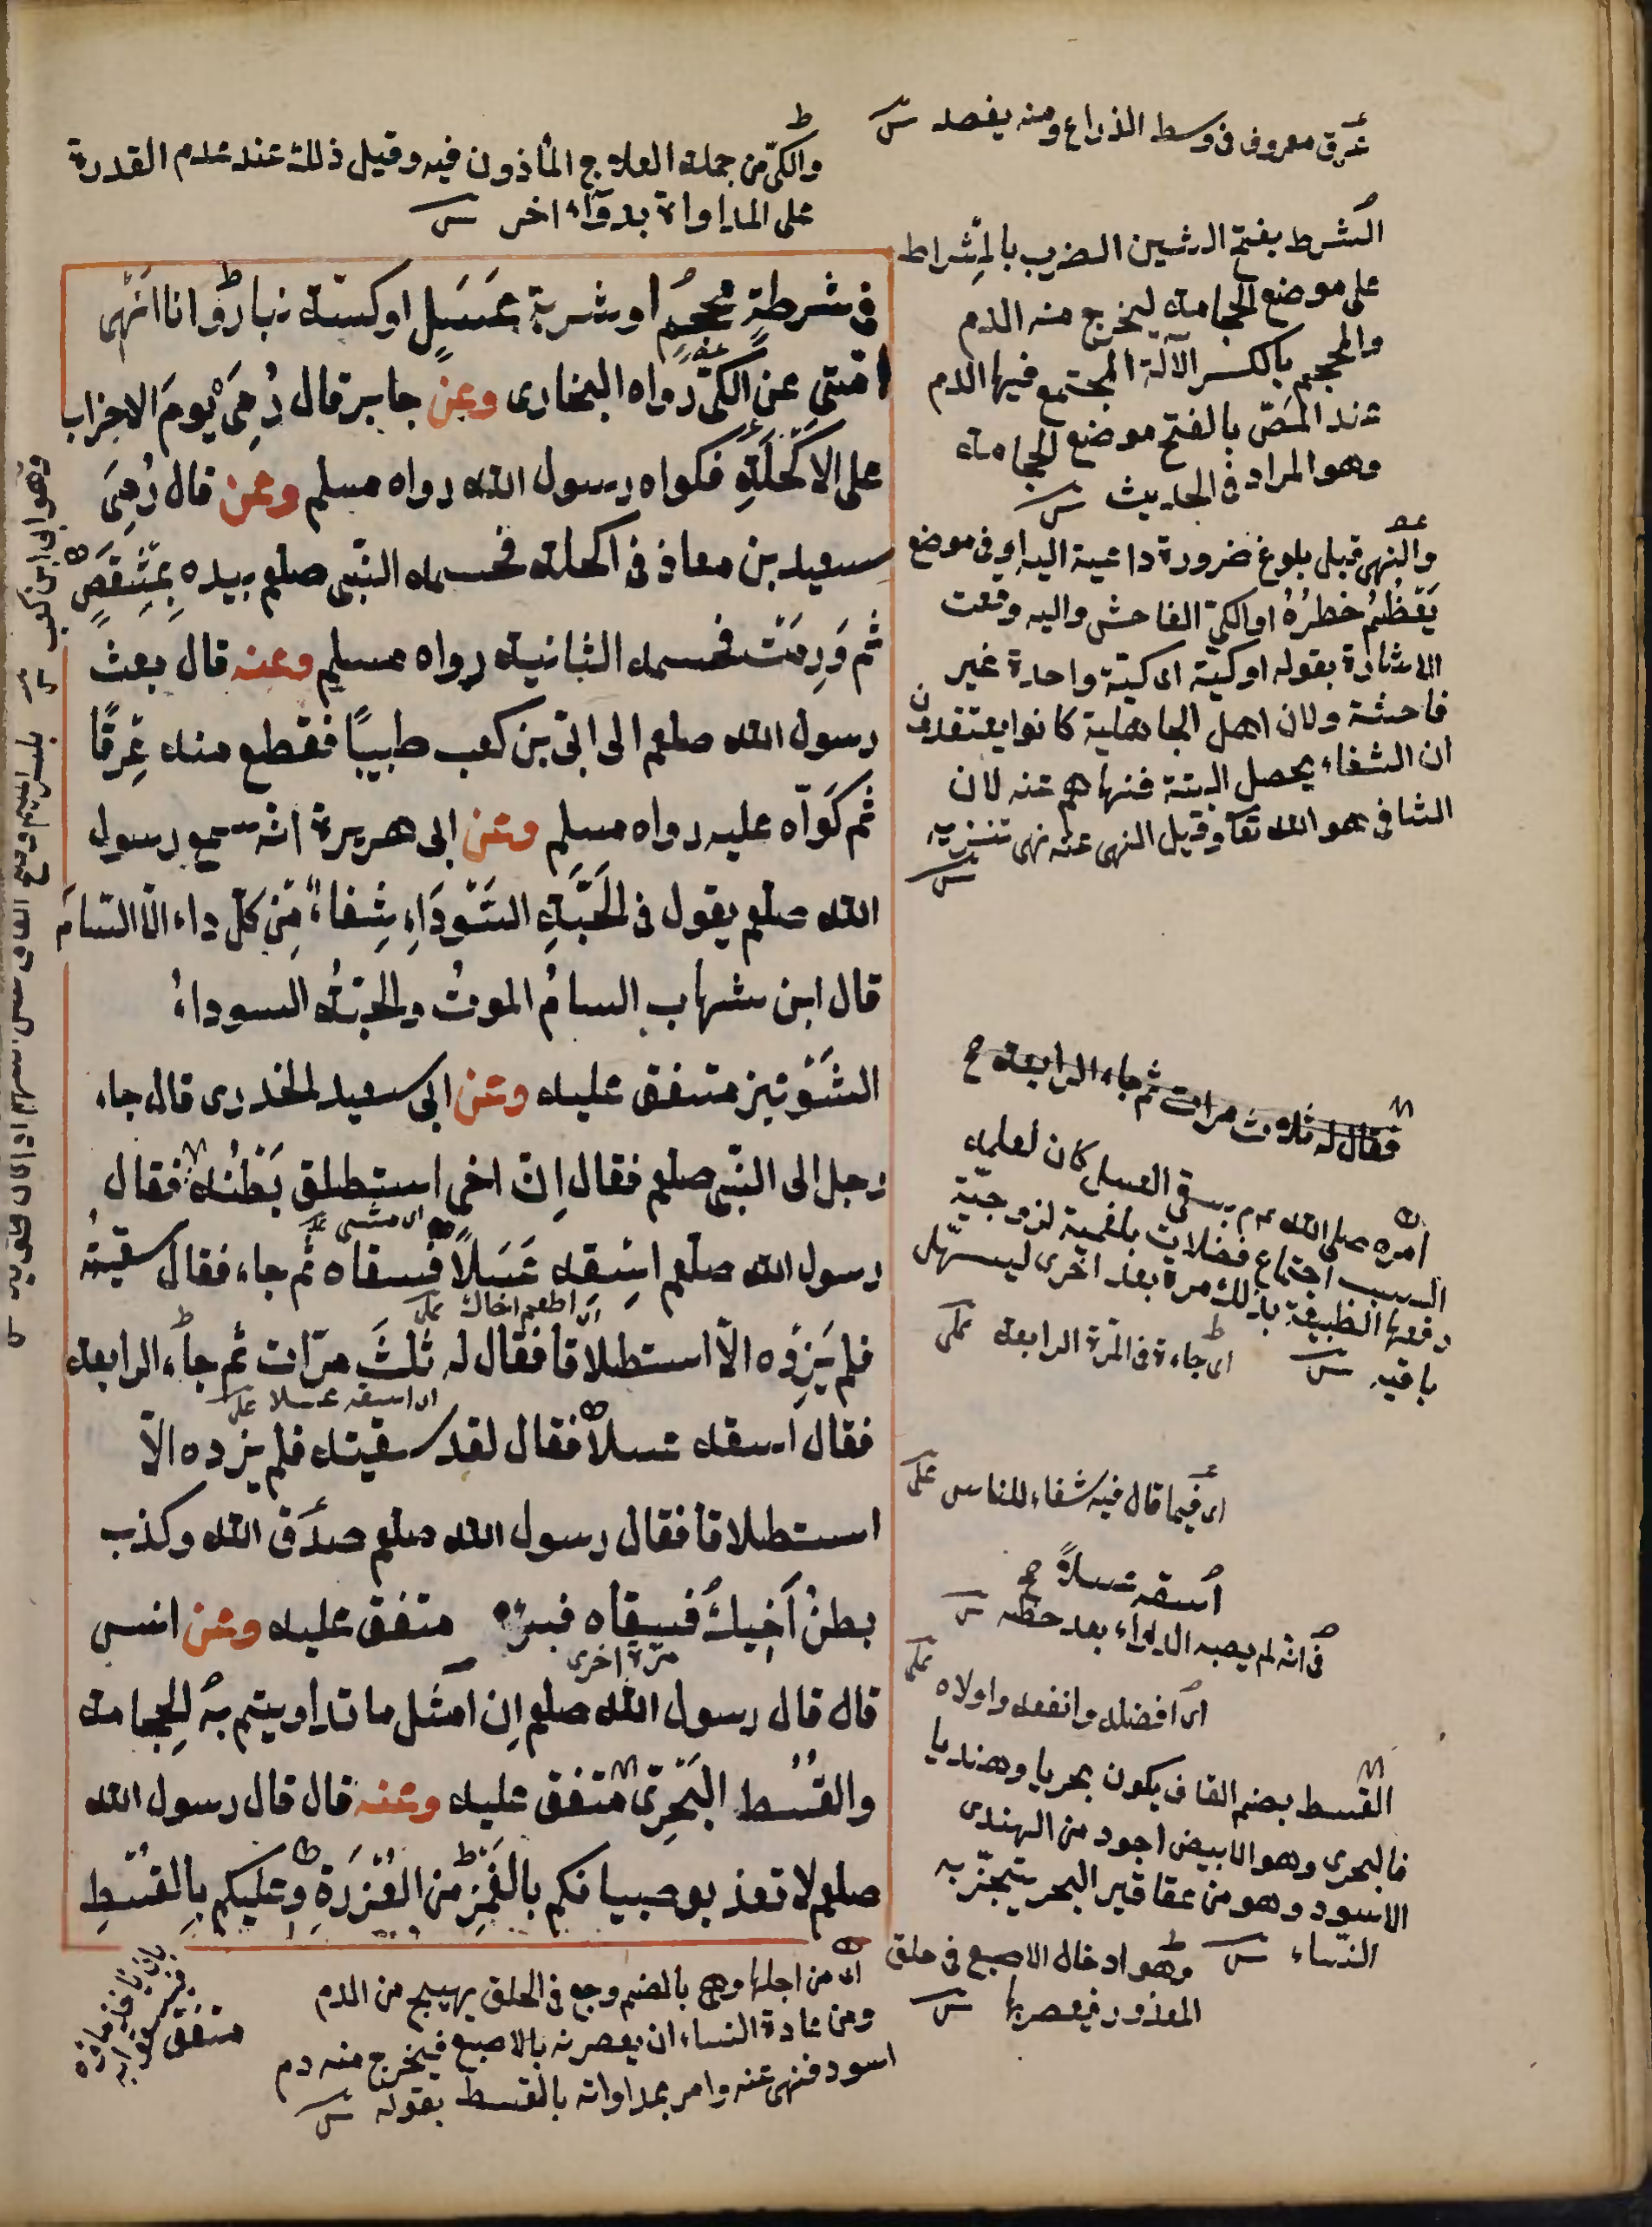 عرق معروف فى وسط الذراع ومنه يفصد
والكىّ من جملة العلاج المأذون فيه وقيل ذلك عند عدم القدرة
على المداواة بدوآء اخر
فى شرطةِ محجمٍ او شربة عَسَلٍ او كيّة بنار وانا انهى
امتى عن الكىّ رواه البخارى وعن جابر قال رُمِىَ يومَ الاحزاب
على الاكحله فكواه رسول الله رواه مسلم وعن قال رُمِىَ
سعيد بن معاذ فى اكحله فحسمه النّبى صلعم بيده بِمِشْقَصٍ
ثم وَرِمَتْ فحسمه الثانية رواه مسلم وعنه قال بعث
رسول الله صلعم الى ابىّ بن كعب طبيبًا فقطع منه عِرقًا
ثم كَوَاه عليه رواه مسلم وعن ابى هريرة انّه سمع رسول
الله صلعم يقول فى الحَبَّةِ السَّوْدَاءِ شِفاءٌ مِّن كلّ داء الّا السّامَ
قال ابن شهاب السامُ الموتُ والحبّةُ السوداءُ
الشَّوْنيز متفق عليه وعن ابى سعيد الخدرى قال جاء
رجل الى النّبى صلعم فقال اِنّ اخى استطلق بَطْنُه فقال
اى مشى
رسول الله صلعم اسْقِه عَسَلًا فسقاه ثم جاء فقال سقيتُه
اى اطعم اخاك
فلم يَزِدْه الّا استطلاقا فقال له ثَلثَ مرّات ثم جاء الرابعة
اى اسقه عسلا
فقال اسقه عسلاً فقال لقد سقيته فلم يزده الّا
استطلاقا فقال رسول الله صلعم صدَق الله وكذب
بطنُ اَخِيكَ فسقاه فبرء متفق عليه وعن انس
مرّة اخرى
قال قال رسول الله صلعم اِن امثل ما تداويتم به الحِجامة
والقُسْط البَحْرِىّ متفق عليه وعنه قال قال رسول الله
صلعم لا تعذبوا صبيانكم بالغَمْزِ من العُذْرَةِ وعليكم بِالقُسْطِ
الشرط بفتح الشين الضرب بالمِشراط
على موضع الحجامة ليخرج منه الدم
والمحجم بالكسر الآلة المجتمع فيها الدم
عند المصّ بالفتح موضع الحجامة
وهو المراد فى الحديث
والنهى قبل بلوغ ضرورة داعية اليه او فى موضع
يَعْظُمُ خطرُهُ او الكىّ الفاحش واليه وقعت
الاشارة بقوله او كيّة اى كيّة واحدة غير
فاحشة ولان اهل الجاهلية كانوا يعتقدون
ان الشفاء يحصل البتة فنهاهم عنه لان
الشافى هو الله تعا وقيل النهى عنه نهى تنزيه
فقال له ثلاث مرات ثم جاء الرابعة
امره صلى الله عم بسقى العسل كان لعلمه
السبب اجتماع فضلات بلغمية لزوجيّة
دفعها الطبيعة بذلك مرة بعد اخرى ليسهل
باقيه
اى جاءه فى المرّة الرابعة
اى فيما قال فيه شفاء للناس
اسقه عسلاً
فى انه لم يصبه الدواء بعد حظّه
اى افضله وانفعه واولاه
القسط بضم القاف يكون بحريا وهنديا
فالبحرى وهو الابيض اجود من الهندى
الاسود وهو من عقاقير البحر يتبخّر به
النساء
وهو ادخال الاصبع فى حلق
المعذور فيعصر بها
اى من اجلها وهى بالضم وجع فى الحلق يهيج من الدم
ومن عادة النساء ان يعصرنه بالاصبع فيخرج منه دم
اسود فنهى عنه وامر بمداواته بالقسط بقوله
متفق
وهو ابى ابن كعب